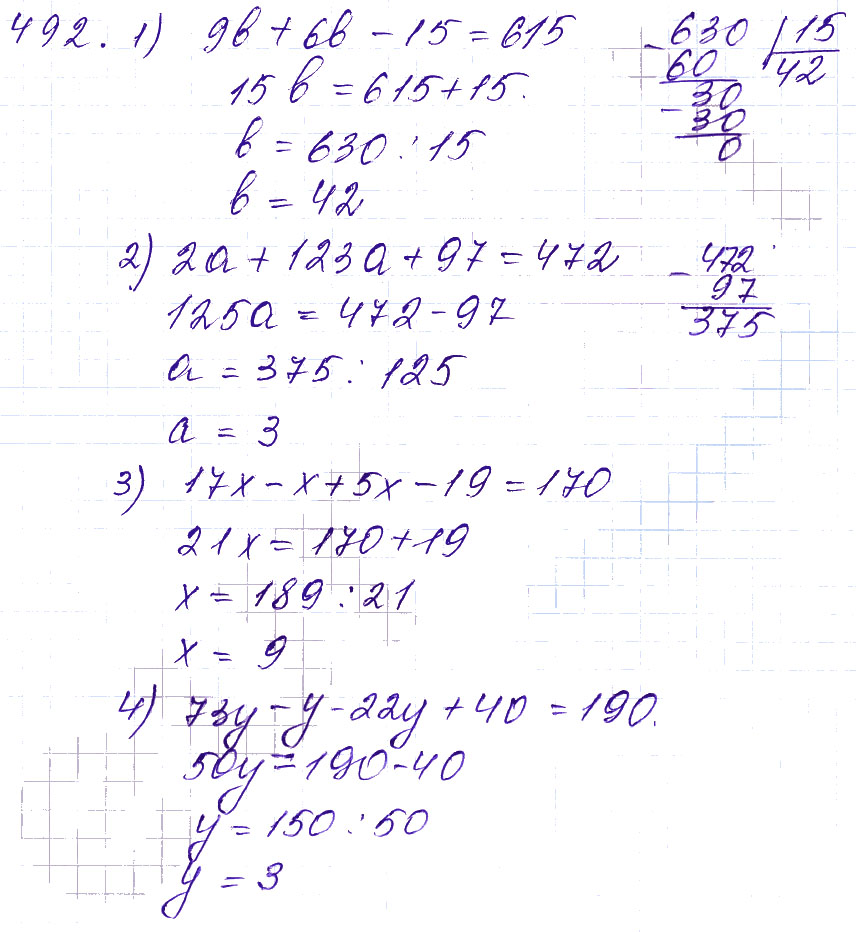 492. 1) 9b + 6b - 15 = 615
15b = 615 + 15.
b = 630 : 15
b = 42
- 630 | 15
60 42
- 30
30
0
2) 2a + 123a + 97 = 472
125a = 472 - 97
a = 375 : 125
a = 3
- 472
97
375
3) 17x - x + 5x - 19 = 170
21x = 170 + 19
x = 189 : 21
x = 9
4) 73y - y - 22y + 40 = 190.
50y = 190 - 40
y = 150 : 50
y = 3